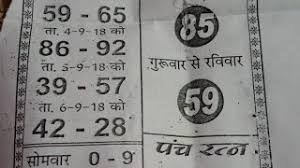 59 - 65
ता. 4-9-18 को
86 - 92
ता. 5-9-18 को
39 - 57
ता. 6-9-18 को
42 - 28
सोमवार 0 - 9
85
गुरूवार से रविवार
59
पंच रत्न